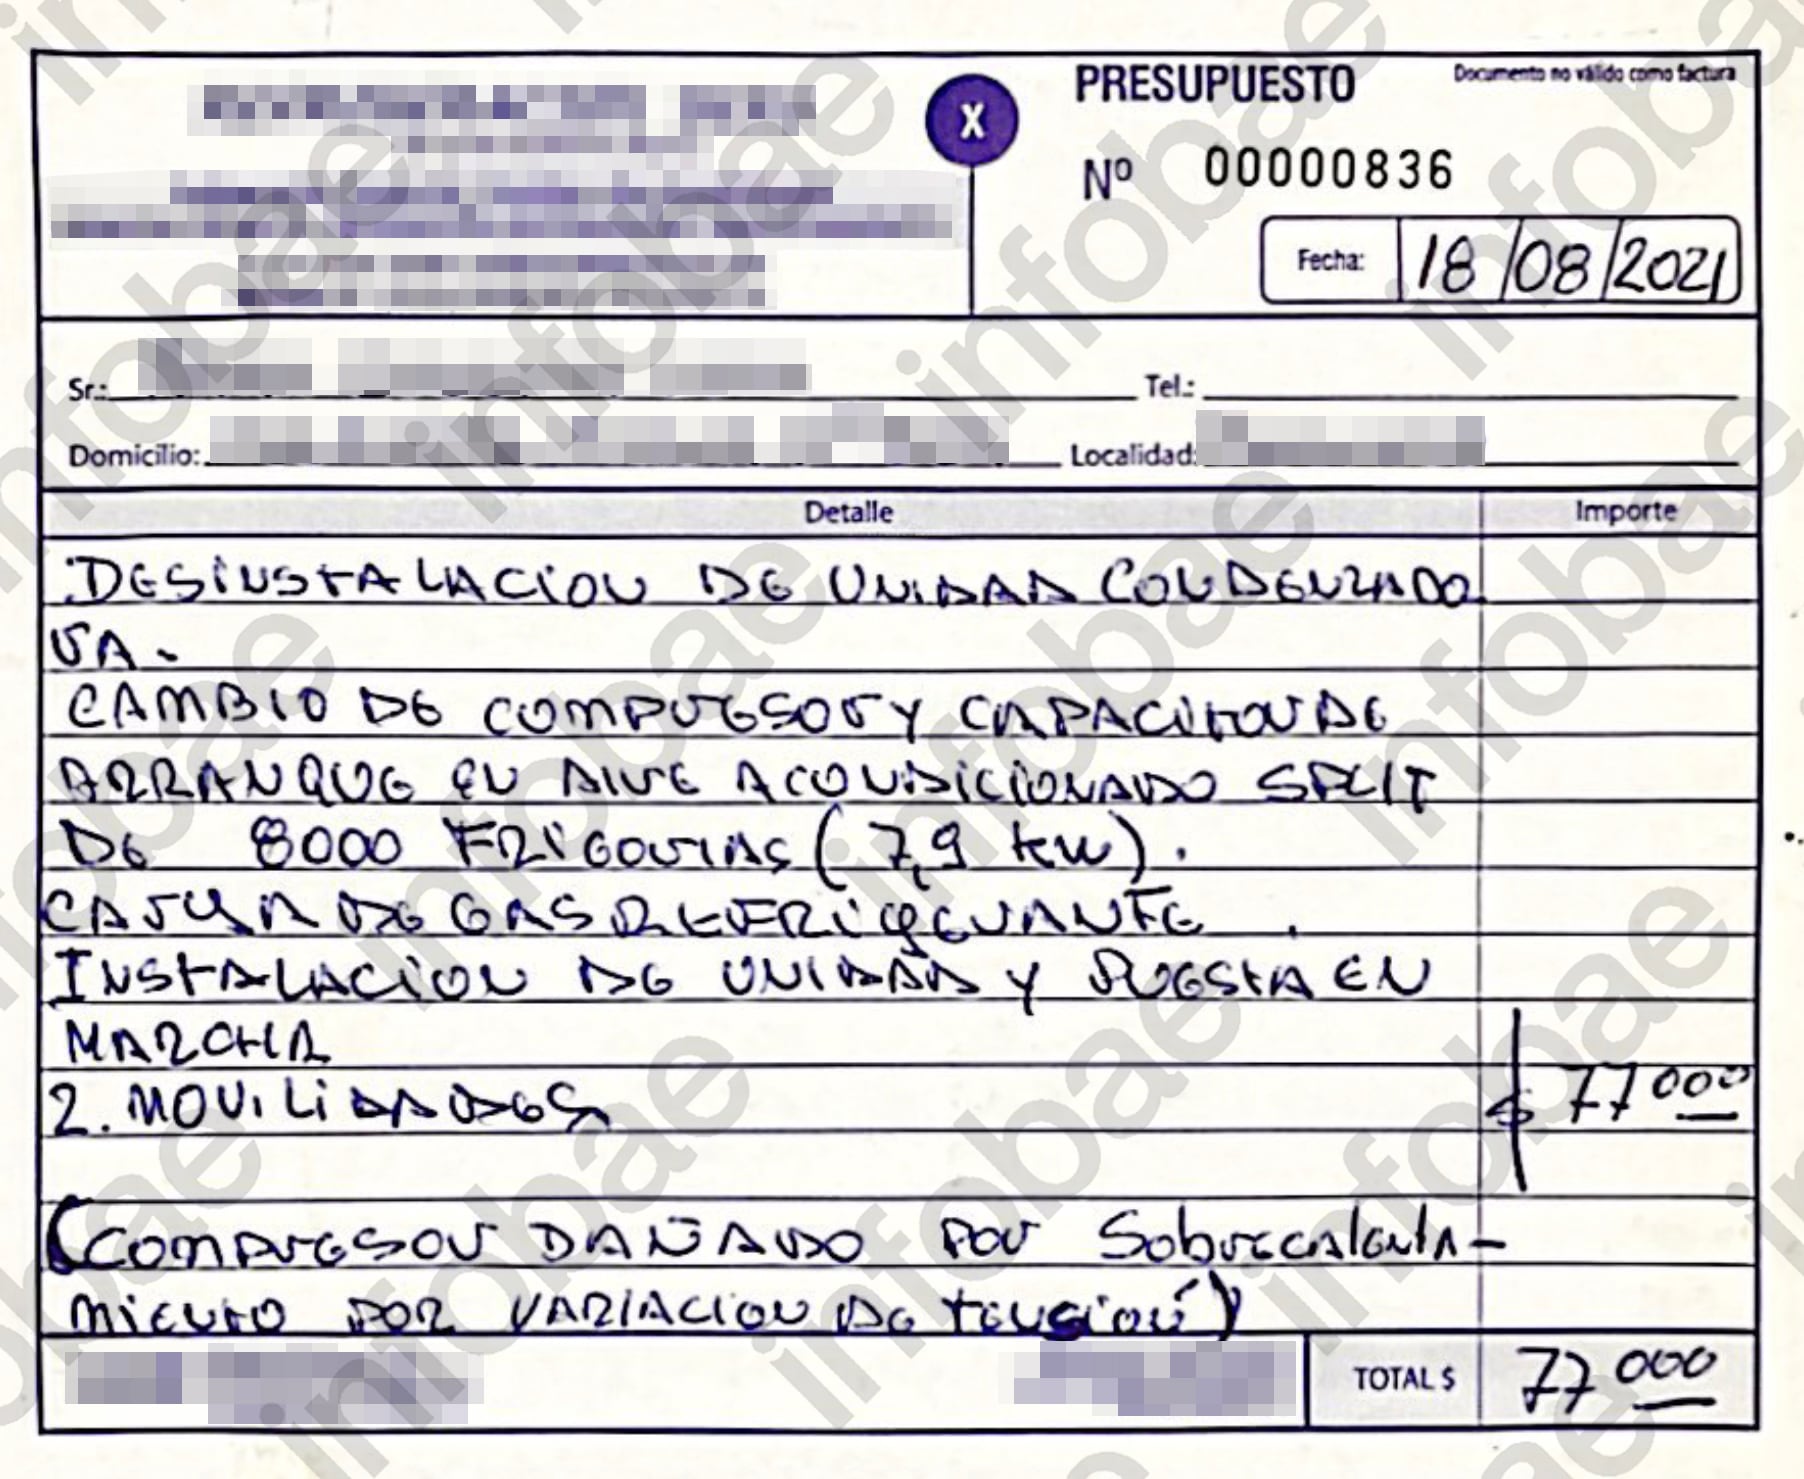 PRESUPUESTO
Documento no válido como factura
X
Nº 00000836
Fecha: 18/08/2021
Sr.:
Tel.:
Domicilio:
Localidad:
Detalle
Importe
DESINSTALACION DE UNIDAD CONDENZADO
RA.
CAMBIO DE COMPRESOR Y CAPACITOR DE
ARRANQUE EN AIRE ACONDICIONADO SPLIT
DE 8000 FRIGORIAS (7,9 kW).
CARGA DE GAS REFRIGERANTE.
INSTALACION DE UNIDAD Y PUESTA EN
MARCHA
2. MOVILIDADES
$ 77000
(COMPRESOR DAÑADO POR Sobrecalenta-
miento POR VARIACION DE tensión)
TOTAL $ 77000
infobae